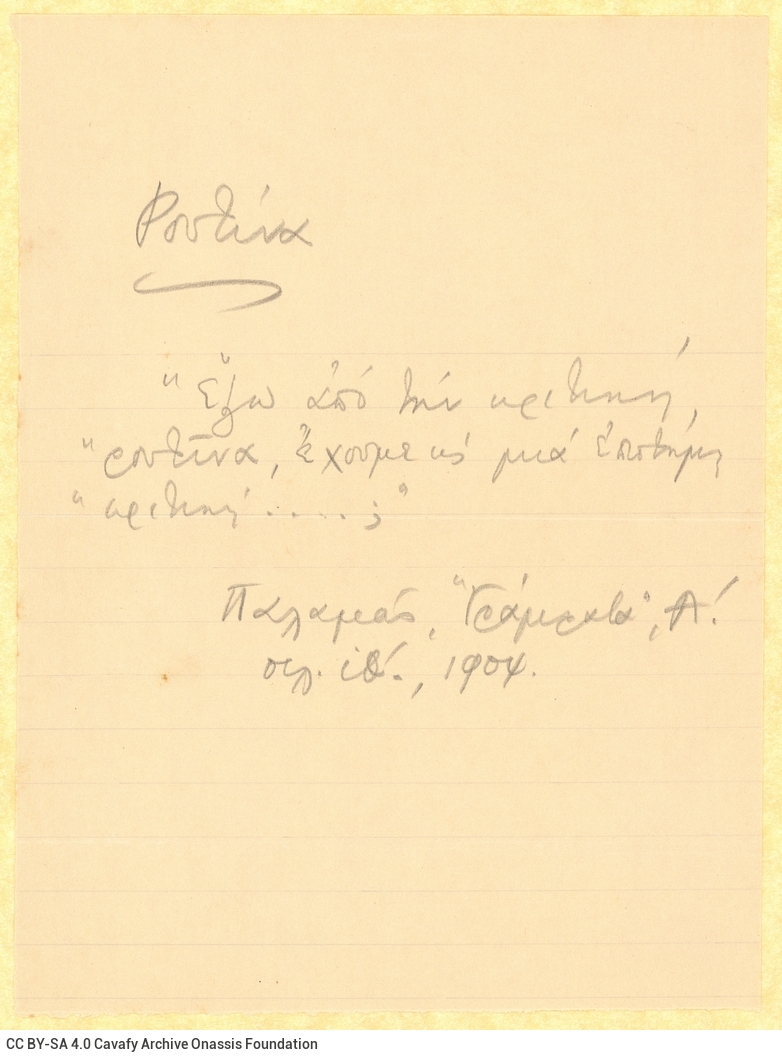 Ρουτίνα
" Ἔξω ἀπό τήν κριτική,
" ρουτίνα, ἔχουμε κ̀ μιά ἐπιστήμη
" κριτική . . . . . ;"
Παλαμᾶς, "Γράμματα", Α΄.
σελ. ιθ΄., 1904.
CC BY-SA 4.0 Cavafy Archive Onassis Foundation